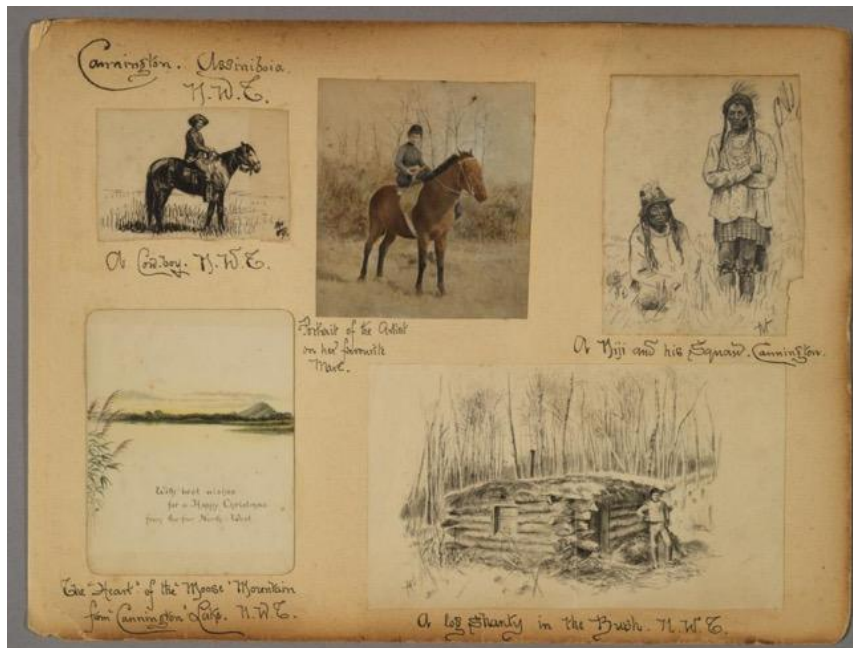 Cannington. Assiniboia.
N.W.T.
A Cowboy. N.W.T.
Portrait of the Artist
on her favourite
Mare.
A Niji and his Squaw. Cannington.
With best wishes
for a Happy Christmas
from the far North-West
The "Heart" of the "Moose" Mountain
from Cannington Lake. N.W.T.
A log Shanty in the Bush. N.W.T.